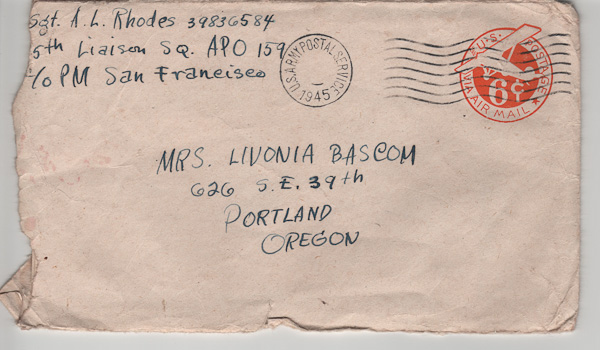 Sgt. A. L. Rhodes 39836584
5th Liaison Sq. APO 159
c/o PM San Francisco
U.S. ARMY POSTAL SERVICE
1945
U.S. POSTAGE
6¢
VIA AIR MAIL
MRS. LIVONIA BASCOM
626 S.E. 39th
PORTLAND
OREGON